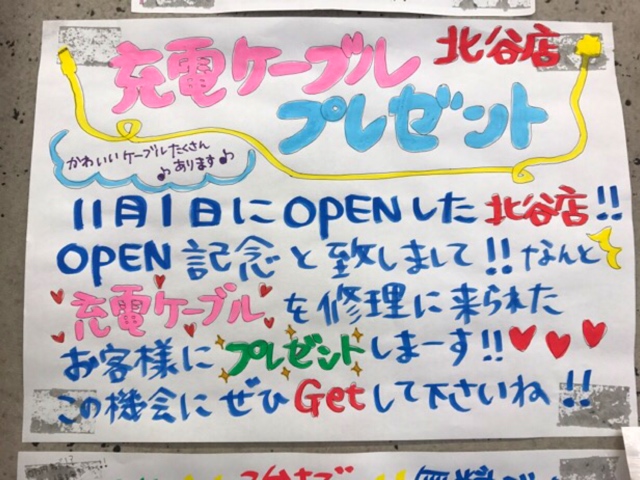 充電ケーブル 北谷店
プレゼント
かわいいケーブルたくさん
あります♪
11月1日にOPENした北谷店!!
OPEN記念と致しまして!!なんと
充電ケーブルを修理に来られた
お客様にプレゼントしまーす!!
この機会にぜひGetして下さいね!!